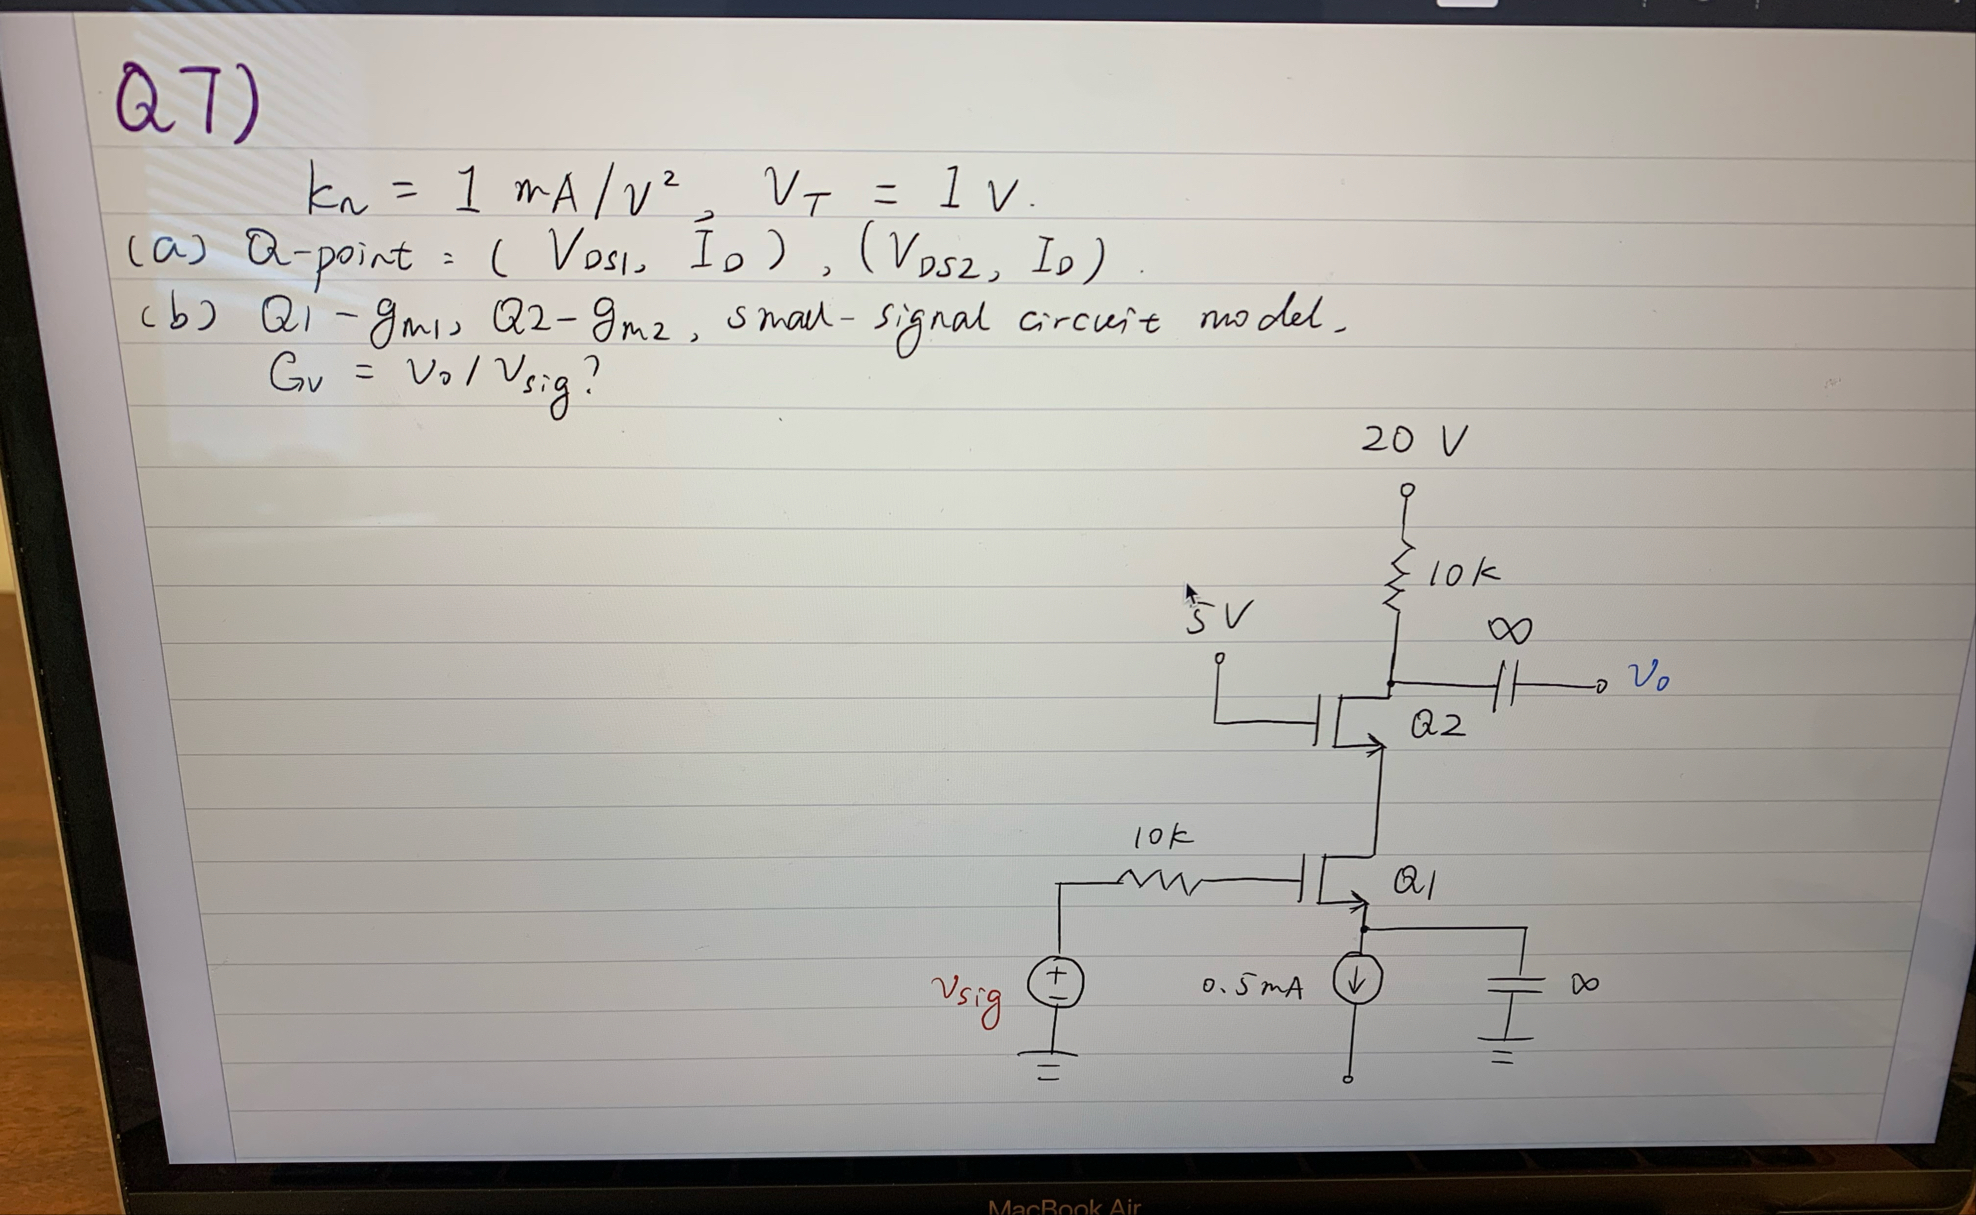 Q7)
kn = 1 mA/V², VT = 1 V.
(a) Q-point = ( VDS1, ID ), (VDS2, ID) .
(b) Q1 - gm1, Q2 - gm2, small-signal circuit model.
Gv = vo / vsig?
20 V
10k
5V
∞
vo
Q2
10k
Q1
vsig
+
−
0.5mA
∞
MacBook Air